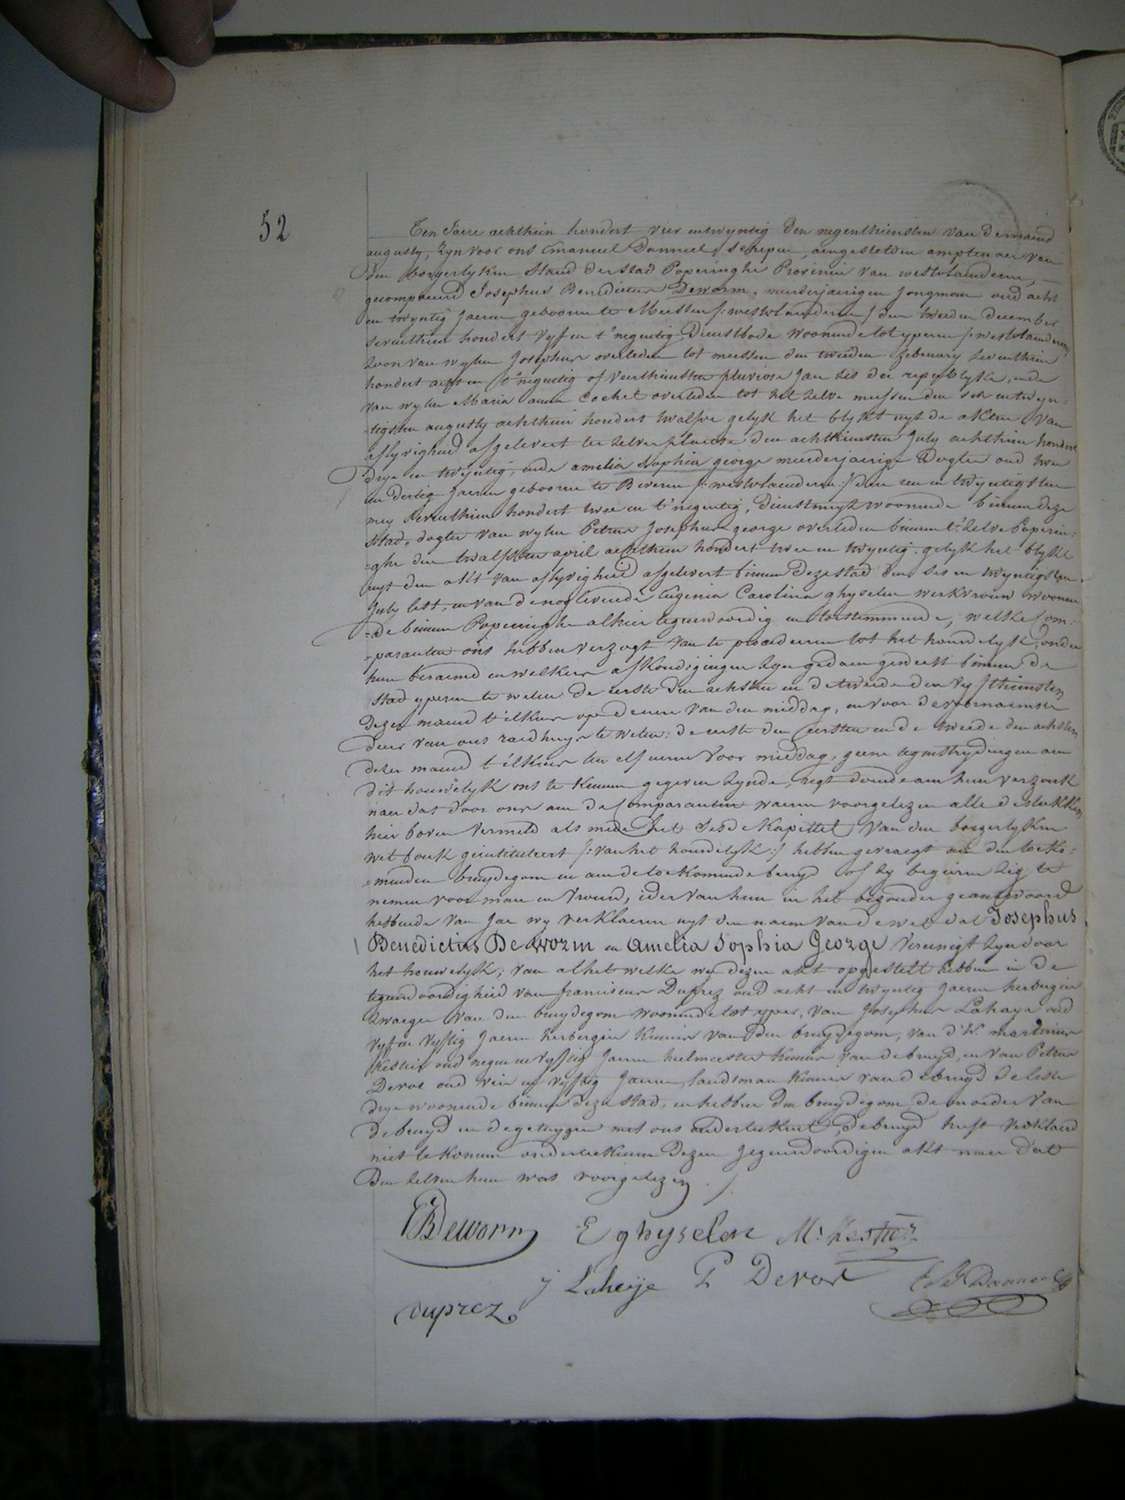 52
Ten Jaere achthien hondert vier entwyntig den negenthiensten van de maend
augusty, zyn voor ons Emanuel Danneel, schepen, aengestelden amptenaer van
den borgerlyken Stand der stad Poperinghe Provincie van westvlaenderen,
gecompareerd Josephus Benedictus Deworm, meerderjaerigen jongman oud acht
en twyntig Jaeren geboren te Meessen /:westvlaenderen:/ den tweeden december
seventhien hondert vyf en t'negentig dienstbode woonende tot yperen /:westvlaenderen
zoon van wylen Josephus overleden tot meessen den tweeden february seventhien
hondert acht en t'negentig of veerthiensten pluviose Jaer ses der republyke, ende
van wylen Maria anna Cochet overleden tot het zelve meessen den ses en twyn-
tigsten augusty achthien hondert twalf gelyk het blykt uyt de akten van
aflyvigheid afgelevert ter zelver plaetse den achthiensten July achthien hondert
drye en twyntig, ende amelia sophia george meerderjaerige Dogter oud twee
en dertig Jaeren geboren te Beveren /:westvlaenderen:/ den een en twyntigsten
mey seventhien hondert twee en t'negentig, dienstmeyt woonende binnen deze
stad, dogter van wylen Petrus Josephus george overleden binnen t'zelve Poperin-
ghe den twalfsten april achthien hondert twee en twyntig, gelyk het blykt
uyt den akt van aflyvigheid afgelevert binnen deze stad den ses en twyntigsten
July lest, en van de nog levende Eugenia Carolina ghyselen werkvrouw woonen
de binnen Poperinghe alhier tegenwoordig en toestemmende, welke Com-
paranten ons hebben verzogt van te procederen tot het houwelyk onder
hun beraemd en welkers afkondigingen zyn gedaen geweest binnen de
stad yperen te weten de eerste den achsten en de tweede den vyfthiensten
dezer maend t'elkens op den uere van den middag, en voor de voornaemste
deur van ons raedhuys te weten: de eerste den eersten ende tweede den achsten
dezer maend t'elkens ten elf ueren voor middag, geene tegenstrydingen aen
dit houwelyk ons te kennen gegeven zynde, regt doende aen hun verzoek
naer dat door ons aen de Comparanten waeren voorgelezen alle de stukken
hier boven vermeld als mede het sesde Kapittel van den borgerlyken
wet bouk geintituleert /:van het houwelyk:/ hebben gevraegt aen den toeko-
menden bruydegom en aen de toekomende bruyd of zy begeiren zig te
nemen voor man en vrouw, ider van hun in het bezonder geantwoord
hebbende van Jae wy verklaeren uyt den naem van de wet dat Josephus
Benedictus De worm en Amelia Sophia George vereenigt zyn door
het houwelyk; van al het welke wy dezen akt opgestelt hebben in de
tegenwoordigheid van franciscus Duprez oud acht en twyntig Jaeren herbergier
zwaeger van den bruydegom woonende tot yper, van Josephus Laheye oud
vyf en vyftig Jaeren herbergier kennis van den bruydegom, van d'H. martinus
Kestier oud negen en vyftig Jaeren heelmeester kennis van de bruyd, en van Petrus
Devos oud vier en vyftig Jaeren, landsman kennis van de bruyd de leste
drye woonende binnen deze stad, en hebben den bruydegom de moeder van
de bruyd en de getuygen met ons onderteekent, de bruyd heeft verklaerd
niet te konnen onderteekenen dezen tegenwoordigen akt naer dat
den zelven hun was voorgelezen.
JB Deworm E ghyselen M. Kestier
j Laheije P Devos E Danneel
duprez